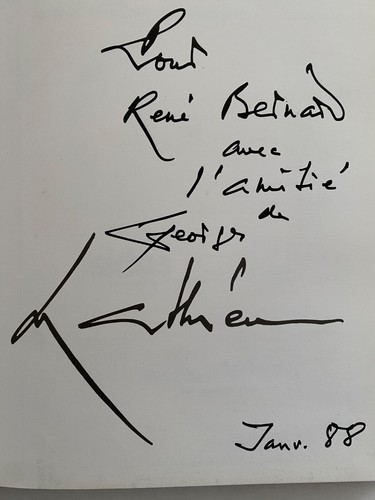 Pour
René Bernard
avec
l'amitié
de
Georges
Mathieu
Janv. 88